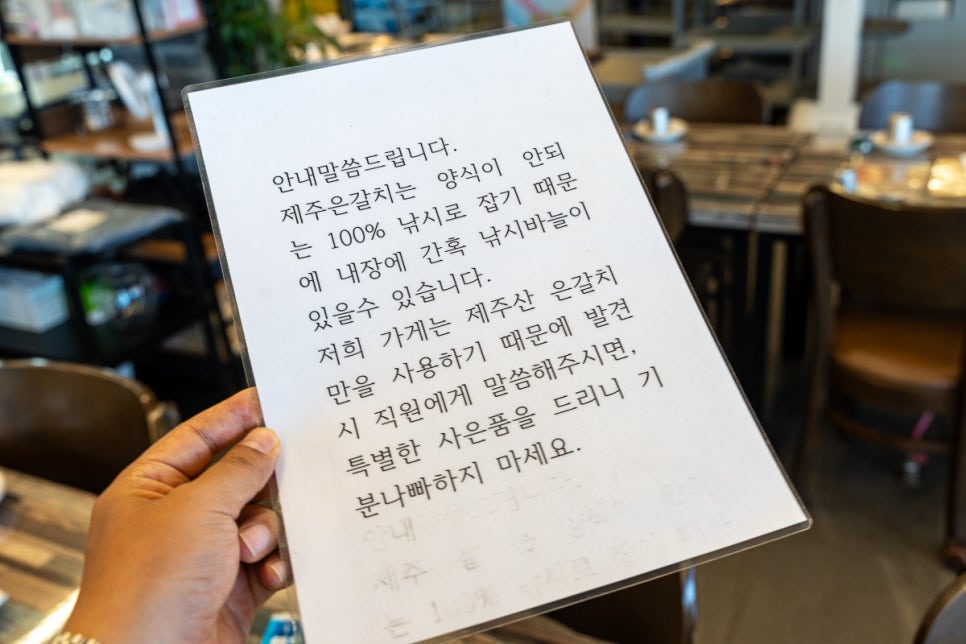 안내말씀드립니다.
제주은갈치는 양식이 안되
는 100% 낚시로 잡기 때문
에 내장에 간혹 낚시바늘이
있을수 있습니다.
저희 가게는 제주산 은갈치
만을 사용하기 때문에 발견
시 직원에게 말씀해주시면,
특별한 사은품을 드리니 기
분나빠하지 마세요.
안내
제주
는